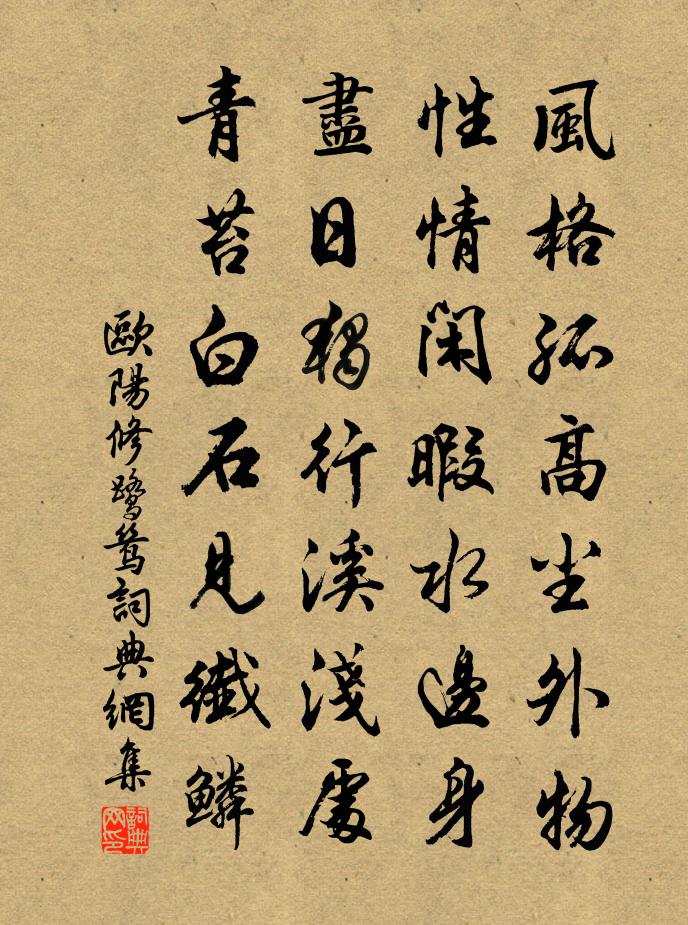 風格孤高塵外物
性情閑暇水邊身
盡日獨行溪淺處
青苔白石見纖鱗
歐陽修鷺鷥詞典網集
詞典网印